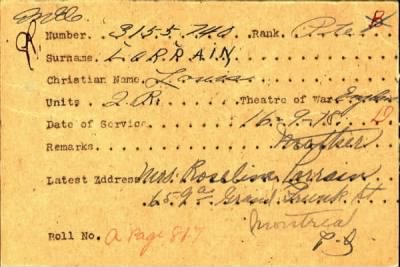 Number. 3155740 Rank. Pte
B
Surname. LARRAIN.
Christian Name. Louis
Units 2.R. Theatre of War. England
Date of Service. 16-9-18. D
Remarks. Mother
Latest Address Mrs. Roselina Larrain
659a Grand Trunk St
Montreal
P.Q
Roll No. A Page 817